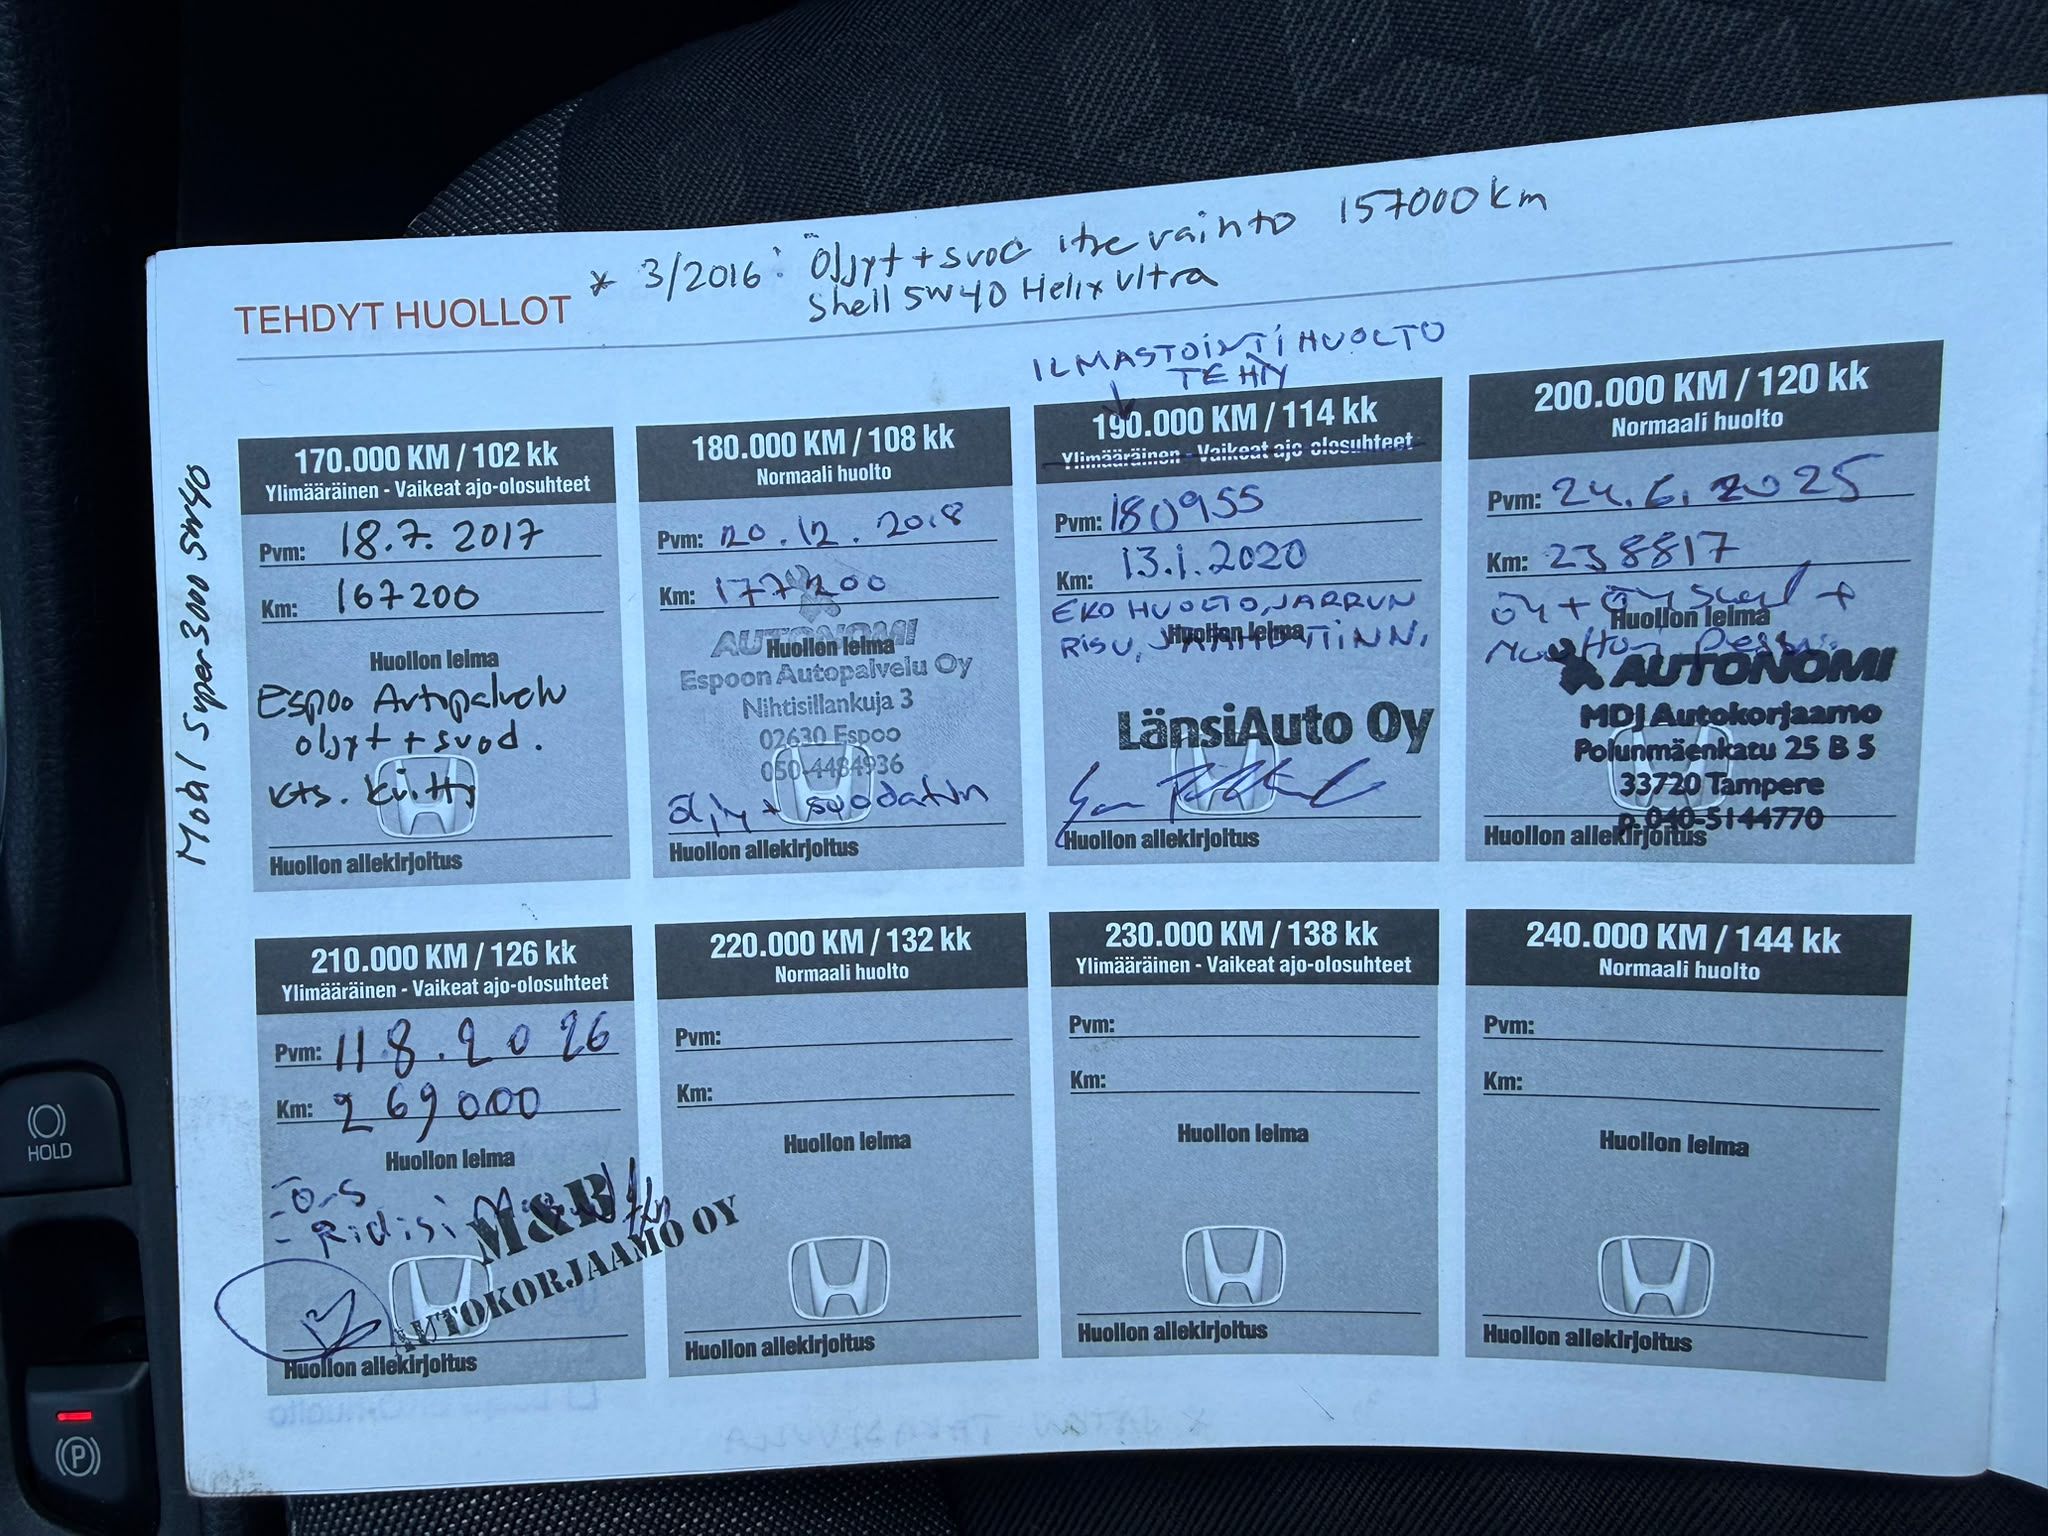 * 3/2016: Öljyt + svod itse vainto 157000 km
Shell 5W40 Helix Ultra
TEHDYT HUOLLOT
Mobil Super 3000 5W40
170.000 KM / 102 kk
Ylimääräinen - Vaikeat ajo-olosuhteet
Pvm: 18.7. 2017
Km: 167200
Huollon leima
Espoo Autopalvelu
öljyt + svod.
Huollon allekirjoitus
180.000 KM / 108 kk
Normaali huolto
Pvm: 20.12.2018
Km: 177200
AUTONOMI
Huollon leima
Espoon Autopalvelu Oy
Nihtisillankuja 3
02630 Espoo
050-4484936
öljy + suodatin
Huollon allekirjoitus
ILMASTOINTI HUOLTO
TEHTY
190.000 KM / 114 kk
Ylimääräinen - Vaikeat ajo-olosuhteet
Pvm: 180955
Km: 13.1.2020
EKO HUOLTO, JARRUN
RISU, JÄÄHDYTTINN.
Huollon leima
LänsiAuto Oy
Huollon allekirjoitus
200.000 KM / 120 kk
Normaali huolto
Pvm: 24.6.2025
Km: 238817
Huollon leima
AUTONOMI
MDJ Autokorjaamo
Polunmäenkatu 25 B 5
33720 Tampere
p. 040-5144770
Huollon allekirjoitus
210.000 KM / 126 kk
Ylimääräinen - Vaikeat ajo-olosuhteet
Pvm: 11.8.2026
Km: 269000
Huollon leima
- Ö-S
M&B
AUTOKORJAAMO OY
Huollon allekirjoitus
220.000 KM / 132 kk
Normaali huolto
Pvm:
Km:
Huollon leima
Huollon allekirjoitus
230.000 KM / 138 kk
Ylimääräinen - Vaikeat ajo-olosuhteet
Pvm:
Km:
Huollon leima
Huollon allekirjoitus
240.000 KM / 144 kk
Normaali huolto
Pvm:
Km:
Huollon leima
Huollon allekirjoitus
HOLD
P